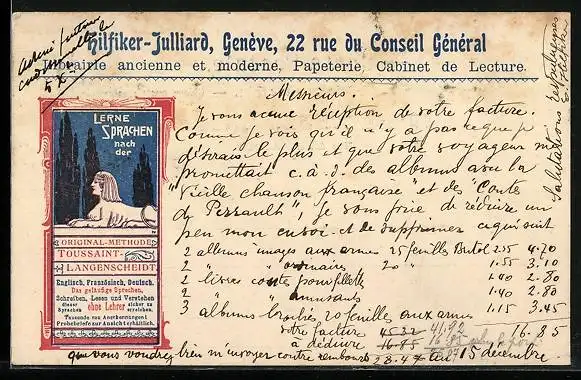 Hilfiker-Julliard, Genève, 22 rue du Conseil Général
Librairie ancienne et moderne. Papeterie. Cabinet de Lecture.
Messieurs.
Je vous accuse réception de votre facture.
Comme je vois qu'il n'y a pas ce que je
désirais le plus et que votre voyageur me
promettait c. à. d. des albums avec la
"Vieille chanson française" et des "Contes
de Perrault", je vous prie de réduire un
peu mon envoi et de supprimer ce qui suit
2 albums images aux armes 25 feuilles 2.35 4.70
2 " " ordinaires 20 " 1.55 3.10
2 livres contes pour fillette 1.40 2.80
2 " " amusants 1.40 2.80
3 albums brochés 20 feuilles aux armes 1.15 3.45
votre facture 45.32 41.92 16.85
à déduire 16.85
que vous voudrez bien m'envoyer contre rembours 15 décembre.
Salutations respectueuses
LERNE
SPRACHEN
nach
der
ORIGINAL-METHODE
TOUSSAINT-
LANGENSCHEIDT
Englisch, Französisch, Deutsch.
Das geläufige Sprechen,
Schreiben, Lesen und Verstehen
dieser Sprachen ohne Lehrer sicher zu erreichen.
Tausende von Anerkennungen!
Probebriefe zur Ansicht portofrei.